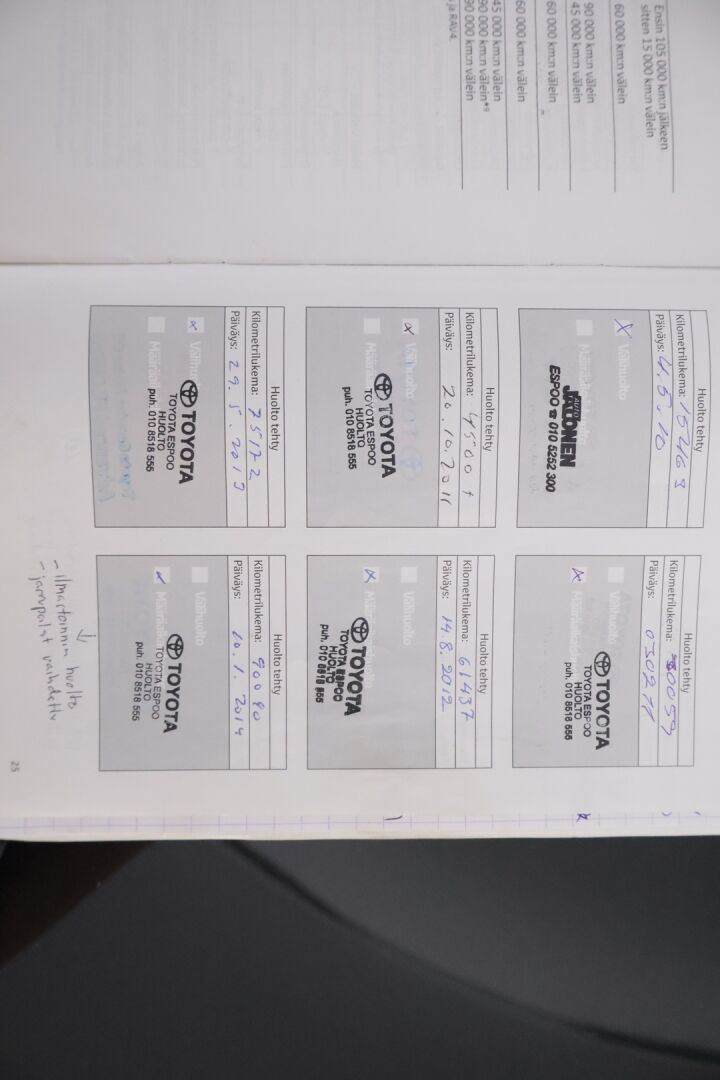 Ensin 105 000 km:n jälkeen
sitten 15 000 km:n välein
60 000 km:n välein
90 000 km:n välein
45 000 km:n välein
60 000 km:n välein
60 000 km:n välein
45 000 km:n välein
90 000 km:n välein*⁹
90 000 km:n välein
ja RAV4.
Huolto tehty
Kilometrilukema: 15469
Päiväys: 4.5.10
X Välihuolto
AUTO
JALONEN
ESPOO ☎ 010 5252 300
Huolto tehty
Kilometrilukema: 30059
Päiväys: 030211
x
TOYOTA
TOYOTA ESPOO
HUOLTO
puh. 010 8518 555
Huolto tehty
Kilometrilukema: 45004
Päiväys: 20.10.2011
x Välihuolto
TOYOTA
TOYOTA ESPOO
HUOLTO
puh. 010 8518 555
Huolto tehty
Kilometrilukema: 61437
Päiväys: 14 8.2012
Välihuolto
x
TOYOTA
TOYOTA ESPOO
HUOLTO
puh. 010 8518 555
Huolto tehty
Kilometrilukema: 75122
Päiväys: 29.5.2013
TOYOTA
TOYOTA ESPOO
HUOLTO
puh. 010 8518 555
Huolto tehty
Kilometrilukema: 90090
Päiväys: 20.1.2014
Välihuolto
TOYOTA
TOYOTA ESPOO
HUOLTO
puh. 010 8518 555
- ilmastoinnin huolto
- jarrupalat vaihdettu
25